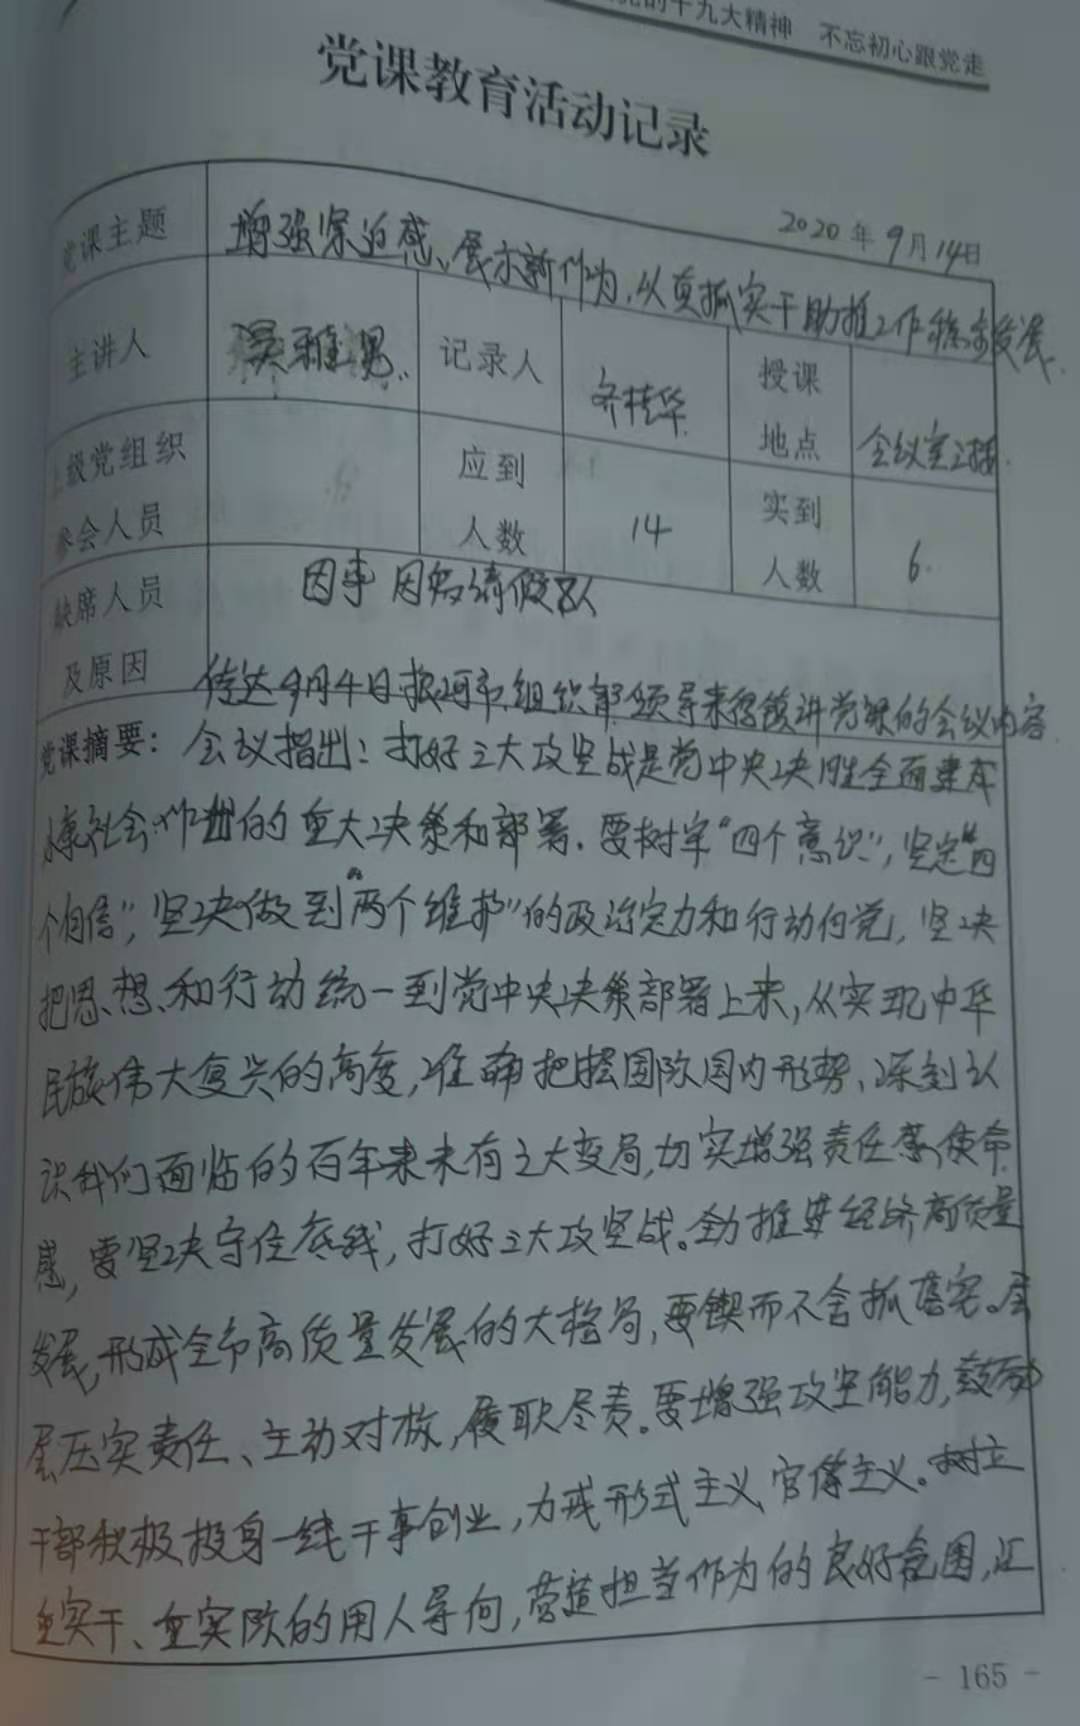 的十九大精神 不忘初心跟党走
党课教育活动记录
2020年9月14日
党课主题 增强紧迫感、展示新作为,以真抓实干助推工作稳步发展.
主讲人 吴雅男 记录人 齐桂华 授课地点 会议室
上级党组织参会人员 应到人数 14 实到人数 6.
缺席人员及原因 因事 因病请假8人
传达9月4日 市组织部领导来 镇讲党课的会议内容
党课摘要: 会议指出:打好三大攻坚战是党中央决胜全面建成
小康社会作出的重大决策和部署.要树牢“四个意识”,坚定“四
个自信”,坚决做到“两个维护”的政治定力和行动向党,坚决
把思、想、和行动统一到党中央决策部署上来,从实现中华
民族伟大复兴的高度,准确把握国际国内形势、深刻认
识我们面临的百年来未有之大变局,切实增强责任感、使命
感,要坚决守住底线,打好三大攻坚战。全力推进经济高质量
发展,形成全市高质量发展的大格局,要锲而不舍抓落实。层
层压实责任、主动对标,履职尽责。要增强攻坚能力,鼓励
干部积极投身一线干事创业,力戒形式主义、官僚主义。树立
重实干、重实际的用人导向,营造担当作为的良好氛围,汇
- 165 -